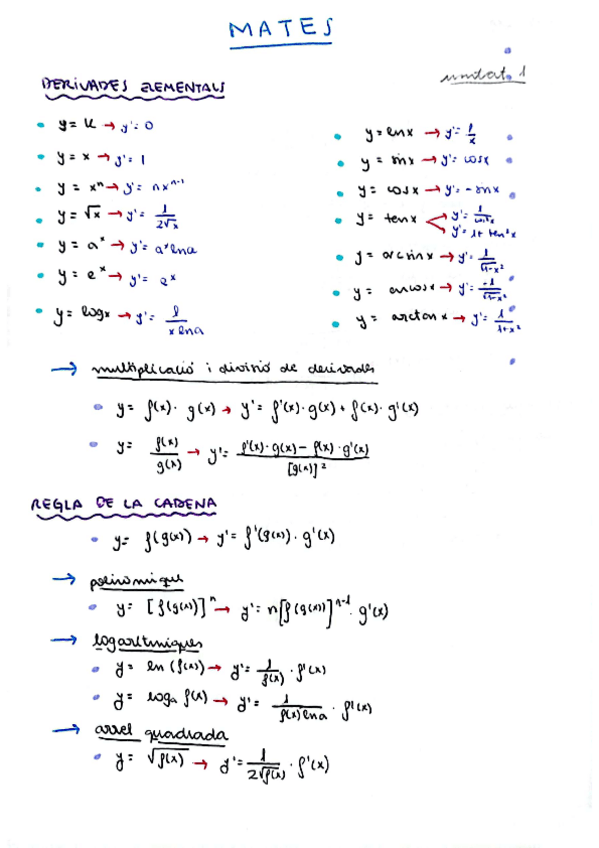 MATES
unitat 1
DERIVADES ELEMENTALS
• y = k → y' = 0
• y = x → y' = 1
• y = xⁿ → y' = nxⁿ⁻¹
• y = √x → y' = 1/(2√x)
• y = aˣ → y' = aˣ ln a
• y = eˣ → y' = eˣ
• y = logx → y' = 1/(x ln a)
• y = ln x → y' = 1/x
• y = sin x → y' = cos x
• y = cos x → y' = - sin x
• y = tan x → y' = 1/cos²x
y' = 1 + tan²x
• y = arcsin x → y' = 1/√(1-x²)
• y = arcosx → y' = -1/√(1-x²)
• y = arctan x → y' = 1/(1+x²)
→ multiplicació i divisió de derivades
• y = f(x) · g(x) → y' = f'(x) · g(x) + f(x) · g'(x)
• y = f(x)/g(x) → y' = (f'(x) · g(x) − f(x) · g'(x))/[g(x)]²
REGLA DE LA CADENA
• y = f(g(x)) → y' = f'(g(x)) · g'(x)
→ polinomique
• y = [f(g(x))]ⁿ → y' = n[f(g(x))]ⁿ⁻¹ · g'(x)
→ logarítmiques
• y = ln (f(x)) → y' = 1/f(x) · f'(x)
• y = logₐ f(x) → y' = 1/(f(x) ln a) · f'(x)
→ arrel quadrada
• y = √f(x) → y' = 1/(2√f(x)) · f'(x)